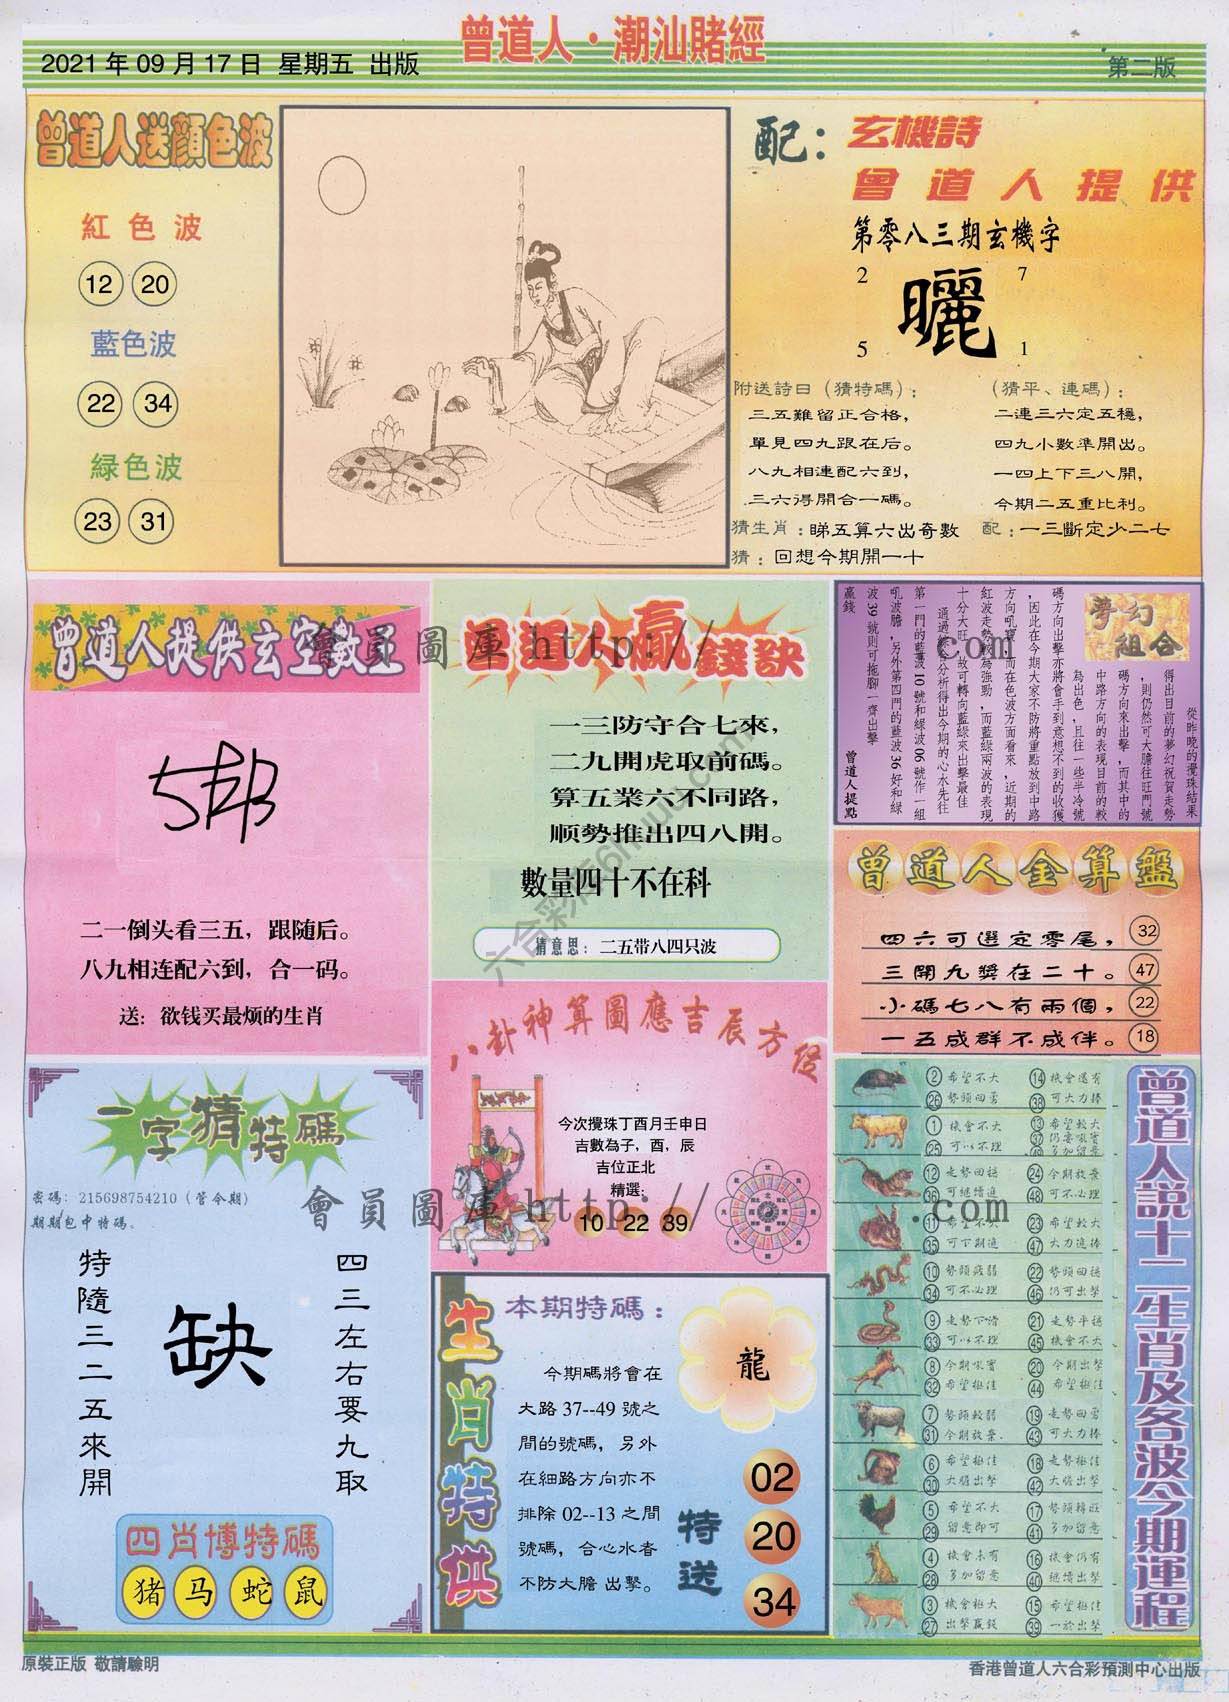 曾道人·潮汕賭經
2021年09月17日 星期五 出版
第二版
曾道人送顏色波
紅色波
12 20
藍色波
22 34
緑色波
23 31
配：
玄機詩
曾道人提供
第零八三期玄機字
2 7
曬
5 1
附送詩曰（猜特碼）：
三五難留正合格，
單見四九跟在后。
八九相連配六到，
三六得開合一碼。
（猜平、連碼）：
二連三六定五穩，
四九小數準開出。
一四上下三八開，
今期二五重比利。
猜生肖：睇五算六出奇數
配：一三斷定少二七
猜：回想今期開一十
曾道人提供玄空數王
二一倒头看三五，跟随后。
八九相连配六到，合一码。
送：欲钱买最烦的生肖
曾道人贏錢訣
一三防守合七來，
二九開虎取前碼。
算五業六不同路，
顺勢推出四八開。
數量四十不在科
猜意思：二五带八四只波
夢幻組合
從昨晚的攪珠結果
得出目前的夢幻祝賀走勢
，則仍然可大膽往旺門號
碼方向來出擊，而其中的
中路方向的表現目前的較
為出色，且往一些半冷號
碼方向出擊亦將會手到意想不到的收獲
，因此在今期大家不防將重點放到中路
方向吼寶，而在色波方面看來，近期的
紅波走勢較為強勁，而藍綠兩波的表現
十分大旺，故可轉向藍綠來出擊最佳
通過綜合分析得出今期的心水先往
第一門的藍波10號和綠波06號作一組
吼波膽，另外第四門的藍波36好和綠
波39號則可拖腳一齊出擊
贏錢
曾道人提點
曾道人金算盤
四六可選定零尾， 32
三開九獎在二十。 47
小碼七八有兩個， 22
一五成群不成伴。 18
八卦神算圖應吉辰方位
今次攪珠丁酉月壬申日
吉數為子，酉，辰
吉位正北
精選：
10 22 39
一字猜特碼
密碼：215698754210（管今期）
期期包中特碼。
四三左右要九取
缺
特隨三二五來開
四肖博特碼
猪 马 蛇 鼠
生肖特供
本期特碼：
龍
今期碼將會在
大路37--49號之
間的號碼，另外
在細路方向亦不
排除02--13之間
號碼，合心水者
不防大膽 出擊。
特送
02
20
34
曾道人説十二生肖及各波今期運程
② 希望不大 ⑭ 機會還有
㉖ 勢頭回勇 ㊳ 可大力捧
① 機會不大 ⑬ 希望較大
㉕ 可以不理 ㊲ 仍要吼實
多加留意
⑫ 走勢回穩 ㉔ 今期放棄
㊱ 可繼續追 ㊽ 可不必理
⑪ 希望不大 ㉓ 希望較大
㉟ 可下期追 ㊼ 大力追捧
⑩ 勢頭疲弱 ㉒ 勢頭回穩
㉞ 可不必理 ㊻ 仍可出擊
⑨ 走勢下滑 ㉑ 走勢平穩
㉝ 可以不理 ㊺ 機會不大
⑧ 今期吼實 ⑳ 今期出擊
㉜ 希望極佳 ㊹ 希望極佳
⑦ 勢頭較弱 ⑲ 走勢回勇
㉛ 今期放棄. ㊸ 可大力捧
⑥ 希望極佳 ⑱ 走勢極佳
㉚ 大膽出擊 ㊷ 大膽出擊
⑤ 希望不大 ⑰ 勢頭轉旺
㉙ 留意即可 ㊶ 多加留意
④ 機會未有 ⑯ 機會仍有
㉘ 多加留意 ㊵ 繼續出擊
③ 機會極大 ⑮ 希望極佳
㉗ 出擊贏錢 ㊴ 一於出擊
原裝正版 敬請驗明
香港曾道人六合彩預測中心出版
會員圖庫 http:// .com
會員圖庫 http:// .com